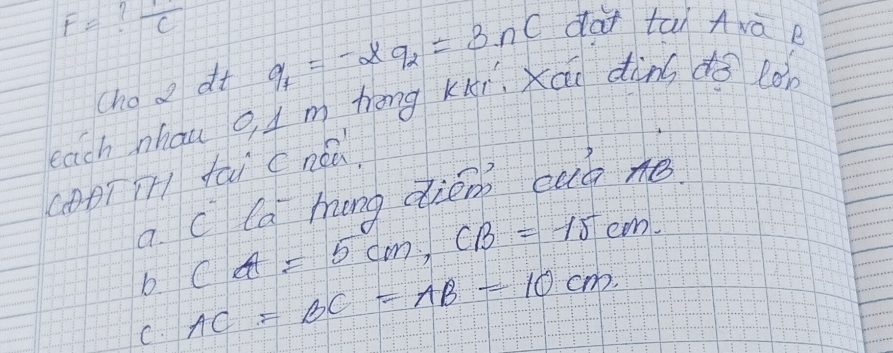 F = ? C
Cho 2 dt q₁ = -2q₂ = 3nC đặt tại A và B
cách nhau 0,1 m trong kkí. Xác định độ lớn
CĐĐTTH tại C nếu.
a. C là trung điểm của AB.
b CA = 5 cm, CB = 15 cm.
c. AC = BC = AB = 10 cm.